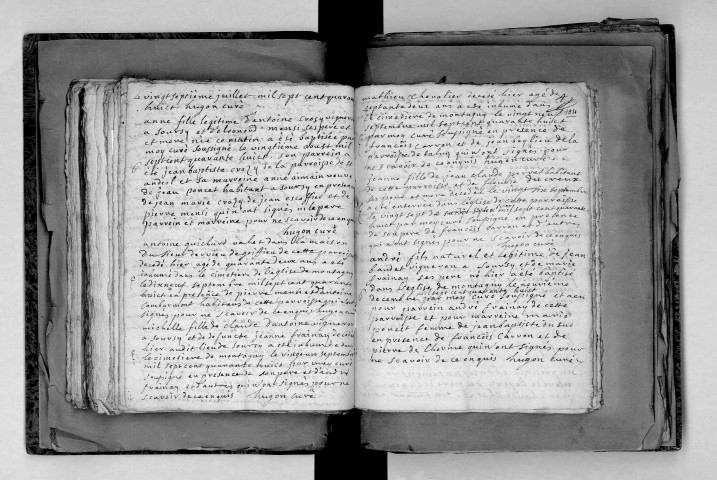 le vingt septième juillet mil sept cent quaran
huict hugon curé
anne fille legitime d'antoine crozy vigneron
a soursy et de leonard mensis ses pere et
et mere née ce matin a été baptisée par
moy curé soussigné le vingtième aoust mil
sept cent quarante huict son parrein a
été jean baptiste crozy de la parroisse de st
andeil et sa marreine anne aimain veuve
de jean poncet habitant a soursy en presence
de jean marie crozy de jean escoffier et de
pierre mensis qui n'ont signés ni le pere
parrein et marreine pour ne scavoir de ce enquis
hugon curé
antoine guichard valet dans la maison
du sieur de cette parroisse
decedé hier agé de quarante deux ans a été
inhumé dans le cimetière de la parroisse de montagny
le dixneuf septembre mil sept cent quarante
huict en presence de pierre et d'antoine
habitans de cette parroisse qui n'ont
signés pour ne scavoir de ce enquis hugon curé
michelle fille de claude d'antoine vigneron
a soursy et de defuncte jeanne frainay decedée
hier audit lieu de soursy a été inhumée dans
le cimetière de montagny le vingt un septembre
mil sept cent quarante huict par moy curé
soussigné en presence de son pere et d'andré
frainay et d'autres qui n'ont signés pour ne
scavoir de ce enquis hugon curé
mathieu chevalier decedé hier agé de
septante deux ans a été inhumé dans
le cimetière de montagny le vingt neuf
septembre mil sept cent quarante huict
par moy curé soussigné en presence de
françois carron et de jean de la
parroisse de qui n'ont signés pour
ne scavoir de ce enquis hugon curé
jeanne fille de jean claude perret habitant
de cette parroisse et de
ses pere et mere decedée le vingt six septembre
a été enterrée dans l'église de cette parroisse
le vingt sept de mil sept cent quarante
huict par moy curé soussigné en presence
de son pere de françois carron et d'autres
qui n'ont signés pour ne scavoir de ce enquis
hugon curé
andré fils naturel et legitime de jean
baudet vigneron a soursy et de marie
frainay ses pere né hier a été baptisé
dans l'eglise de montagny le neuvième
sept cent quarante huict
decembre par moy curé soussigné et a eu
pour parrein andré frainay de cette
parroisse et pour marreine marie
poncet femme de jean baptiste du sud
en presence de françois carron et de
pierre de lhorme qui n'ont signés pour
ne scavoir de ce enquis hugon curé